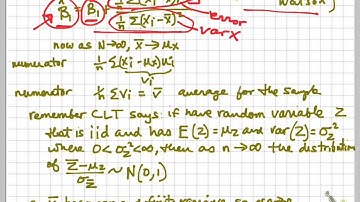 B̂₁ = B₁ 1/n Σ(Xi-X̄)²
error
var X
Watson)
now as N→∞, X̄→μx
numerator 1/n Σ(Xi-μx)ui
Vi
numerator 1/n ΣVi = V̄ average for the sample
remember CLT says: if have random variable Z
that is iid and has E(Z)=μz and var(Z)=σz²
where 0<σz²<∞, then as n→∞ the distribution
of Z̄-μz / σz̄ ~ N(0,1)